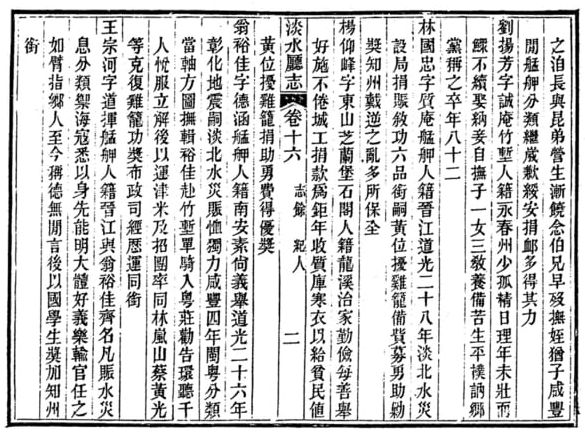 之泊長與昆弟營生漸饒念伯兄早歿撫姪猶子咸豐
間艋舺分類繼歲歉綏安捐卹多得其力
劉揚芳字誠庵竹塹人籍永春州少孤精日理年未壯而
鰥不續娶納妾自撫子一女三敎養備苦生平樸訥鄉
黨稱之卒年八十二
林國忠字質庵艋舺人籍晉江道光二十八年淡北水災
設局捐賑敘功六品銜嗣黃位擾雞籠備貲募勇助勦
獎知州戴逆之亂多所保全
楊仰峰字東山芝蘭堡石閣人籍龍溪治家勤儉每善舉
好施不倦城工捐款爲鉅年收質庫寒衣以給貧民値
淡水廳志 卷十六 志餘 紀人 二
黃位擾雞籠捐助勇費得優獎
翁裕佳字德涵艋舺人籍南安素尚義舉道光二十六年
彰化地震嗣淡北水災賑恤獨力咸豐四年閩粤分類
當軸方圖撫輯裕佳赴竹塹單騎入粤莊勸告環聽千
人忱服立解後以運津米及招團率同林嵐山蔡黃光
等克復雞籠功獎布政司經歷運同銜
王宗河字道揮艋舺人籍晉江與翁裕佳齊名凡賑水災
息分類禦海寇悉以身先能明大體好義樂輸官任之
如臂指鄉人至今稱德無閒言後以國學生獎加知州
銜